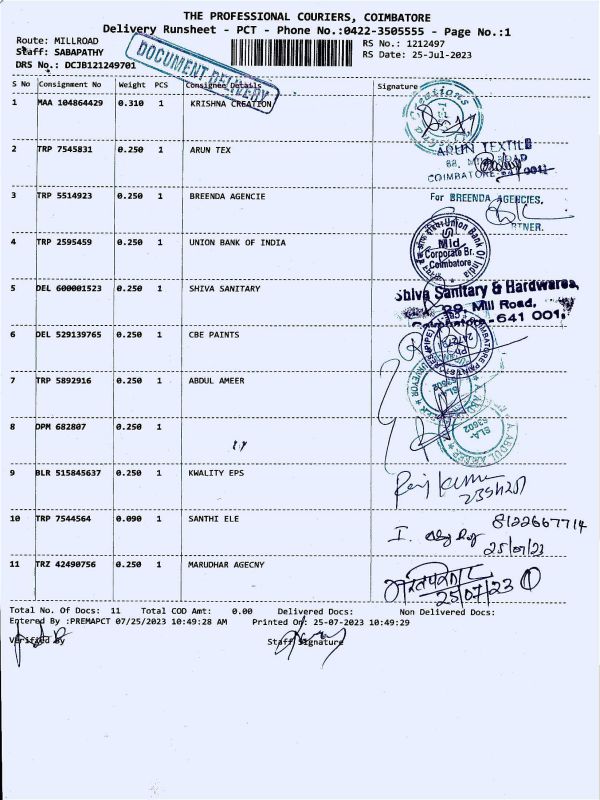 THE PROFESSIONAL COURIERS, COIMBATORE
Delivery Runsheet - PCT - Phone No.:0422-3505555 - Page No.:1
Route: MILLROAD
RS No.: 1212497
Staff: SABAPATHY
RS Date: 25-Jul-2023
DRS No.: DCJB121249701
DOCUMENT DELIVERY
S No Consignment No Weight PCS Consignee Details Signature
1 MAA 104864429 0.310 1 KRISHNA CREATION
Creations
2 TRP 7545831 0.250 1 ARUN TEX
ARUN TEXTILE
68, MILL ROAD
COIMBATORE
3 TRP 5514923 0.250 1 BREENDA AGENCIE
For BREENDA AGENCIES,
RTNER.
4 TRP 2595459 0.250 1 UNION BANK OF INDIA
Union Bank Of India
Mid
Corporate Br.
Coimbatore
5 DEL 600001523 0.250 1 SHIVA SANITARY
Shiva Sanitary & Hardwares,
29, Mill Road,
Coimbatore-641 001.
6 DEL 529139765 0.250 1 CBE PAINTS
7 TRP 5892916 0.250 1 ABDUL AMEER
SLA-
63602
8 DPM 682807 0.250 1
SLA-
63602
9 BLR 515845637 0.250 1 KWALITY EPS
Raj Kumar
10 TRP 7544564 0.090 1 SANTHI ELE
8122667714
25/07/23
11 TRZ 42490756 0.250 1 MARUDHAR AGECNY
25/07/23 1
Total No. Of Docs: 11 Total COD Amt: 0.00 Delivered Docs: Non Delivered Docs:
Entered By :PREMAPCT 07/25/2023 10:49:28 AM Printed On: 25-07-2023 10:49:29
Verified By Staff Signature